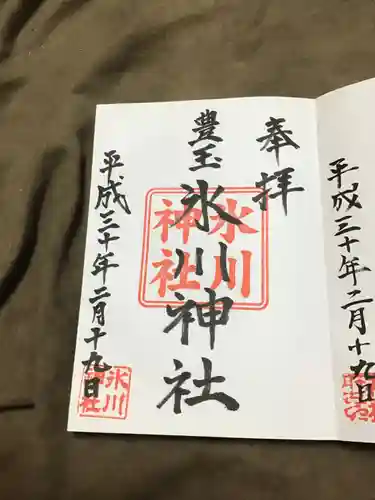 平成三十年二月十九日
奉拝
豊玉
氷川神社
氷川
神社
平成三十年二月十九日
氷川
神社